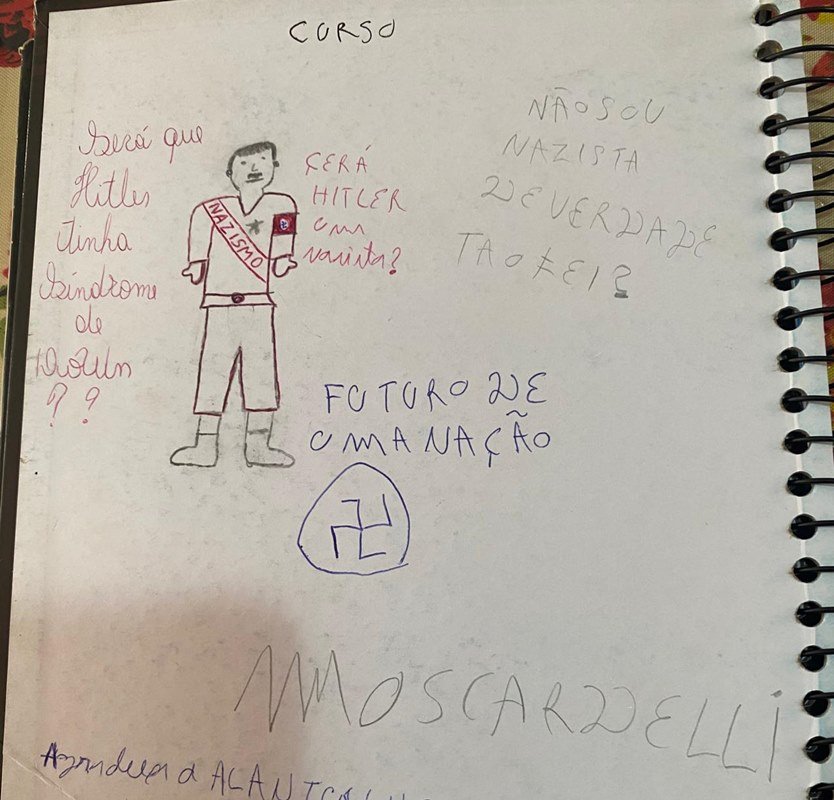 CURSO
Será que
Hitler
tinha
Síndrome
de
ÇERÁ
HITLER
um
nazista?
NAZISMO
NÃO SOU
NAZISTA
DE VERDADE
TAOKEI?
FUTURO DE
UMA NAÇÃO
MOSCARDELLI
a